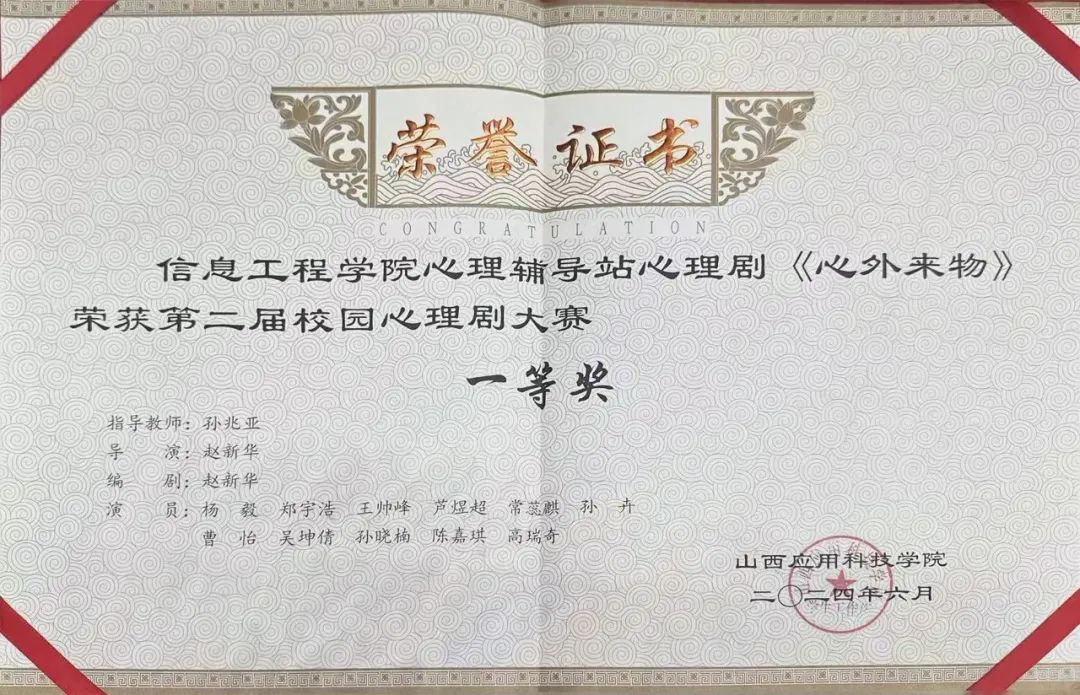 荣誉证书
CONGRATULATION
信息工程学院心理辅导站心理剧《心外来物》
荣获第二届校园心理剧大赛
一等奖
指导教师：孙兆亚
导 演：赵新华
编 剧：赵新华
演 员：杨 毅 郑宇浩 王帅峰 芦煜超 常蕊麒 孙 卉
曹 怡 吴坤倩 孙晓楠 陈嘉琪 高瑞奇
山西应用科技学院
二〇二四年六月